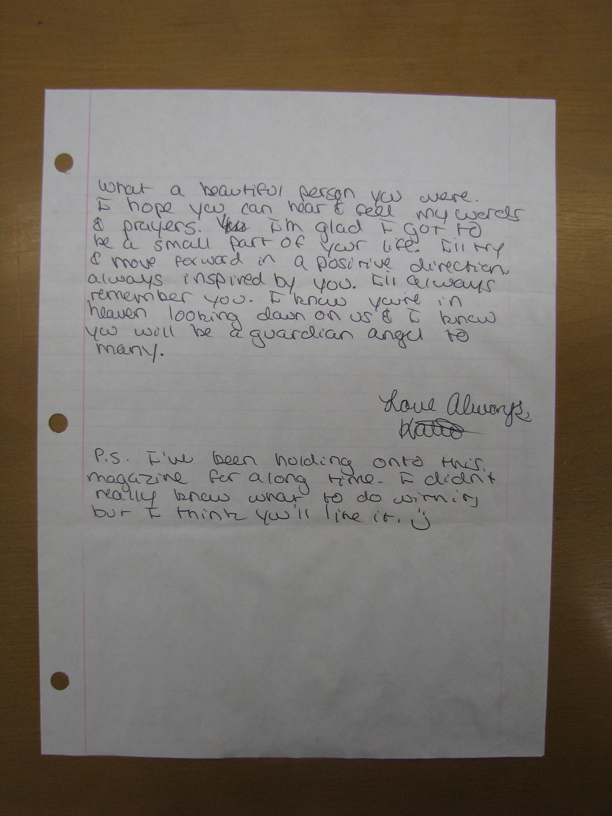 What a beautiful person you were.
I hope you can hear & feel my words
& prayers. I'm glad I got to
be a small part of your life. I'll try
& move forward in a positive direction
always inspired by you. I'll always
remember you. I know you're in
heaven looking down on us & I know
you will be a guardian angel to
many.
Love Always,
P.S. I've been holding onto this
magazine for a long time. I didn't
really know what to do with it,
but I think you'll like it. :)